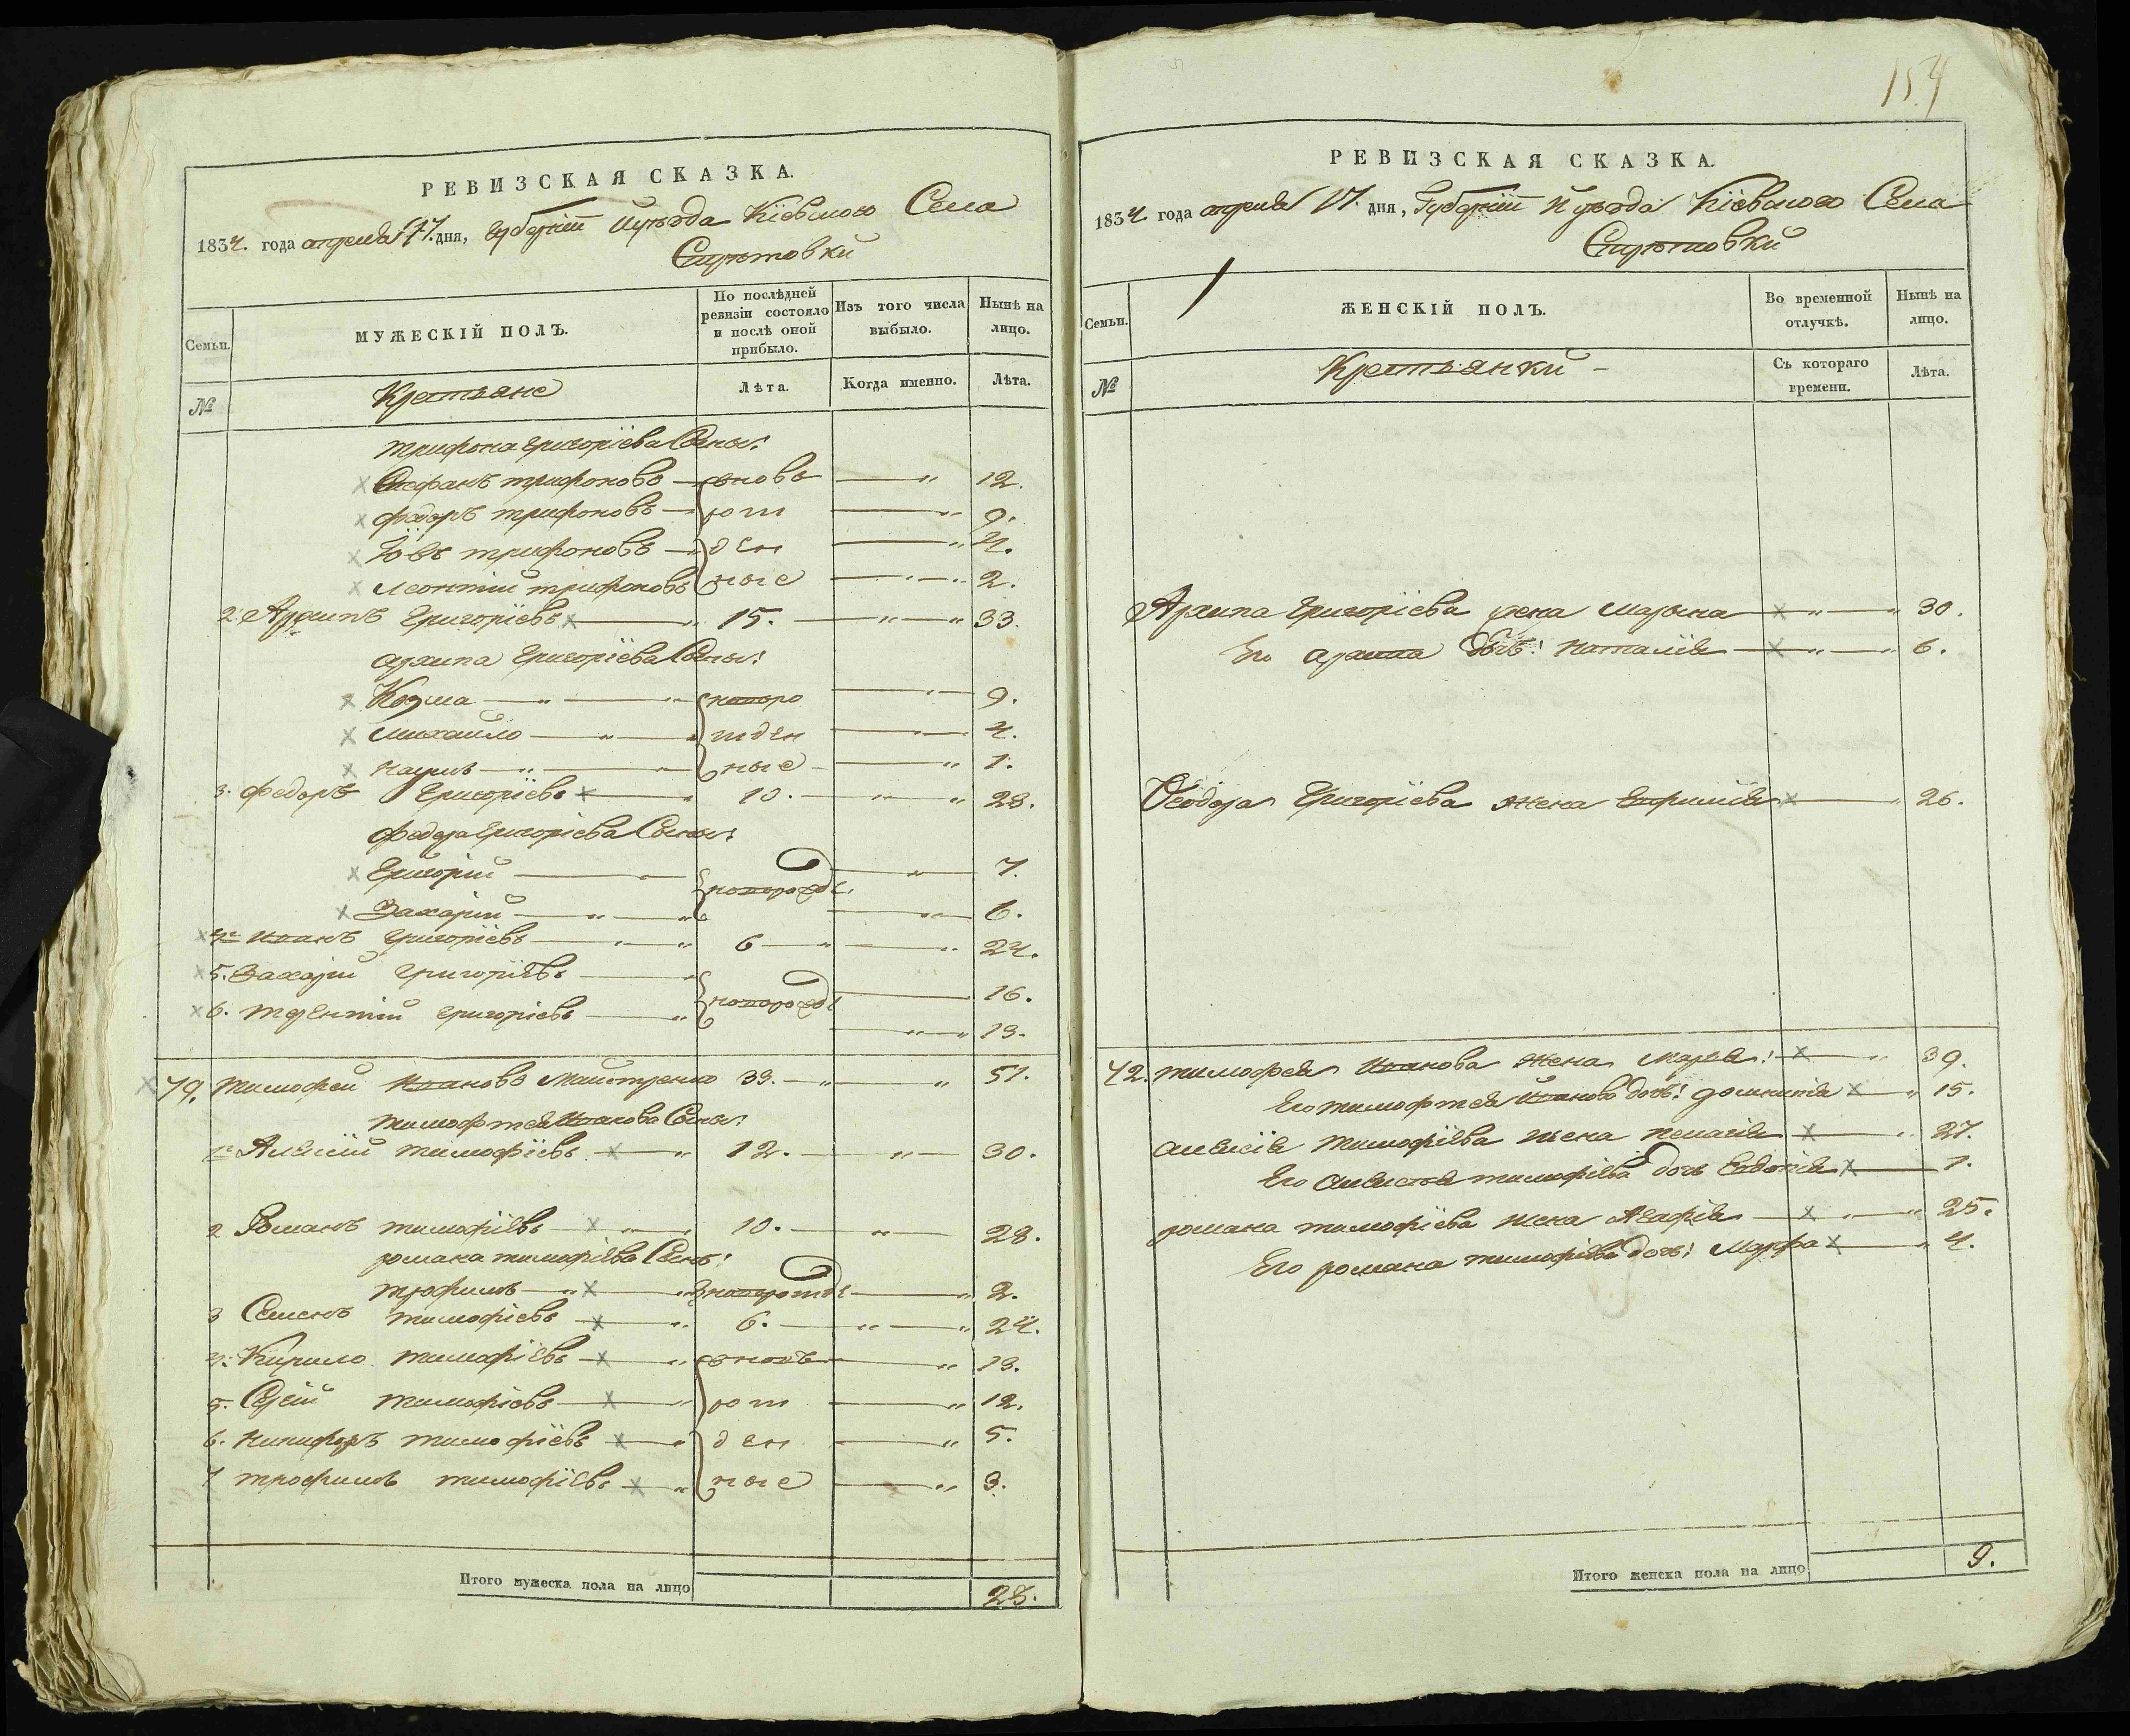 154
РЕВИЗСКАЯ СКАЗКА.
1834. года апреля 17. дня, Губерніи и уезда Кіевского Села
МУЖЕСКІЙ ПОЛЪ.
Семьи.
По послѣдней ревизіи состояло и послѣ оной прибыло.
Изъ того числа выбыло.
Нынѣ на лицо.
№
Крестьяне
Лѣта.
Когда именно.
Лѣта.
трифона григоріева Сыны:
Стефанъ трифоновъ вновь 12.
федоръ трифоновъ рож 9.
Іовъ трифоновъ ден 4.
леонтій трифоновъ ные 2.
2 Архипъ Григоріевъ 15. 33.
архипа Григоріева Сыны:
Козма новоро 9.
михайло жден 4.
наумъ ные 1.
3. федоръ Григоріевъ 10. 28.
федора григоріева Сыны:
Григорій новорожде 7.
Захарій 6.
4. иванъ григоріевъ 6 24.
5. Захарій григоріевъ новорожде 16.
6. терентій григоріевъ 13.
79. тимофей ивановъ майстренко 33. 51.
тимофтея иванова Сыны:
1. Алексій тимофіевъ 12. 30.
2 Романъ тимофіевъ 10. 28.
романа тимофіева Сынъ:
трофимъ новорожде 2.
3 Семенъ тимофіевъ 6. 24.
4. Кирило тимофіевъ вновь 13.
5. Сергій тимофіевъ рож 12.
6. никифоръ тимофіевъ ден 5.
7 трофимъ тимофіевъ ные 3.
Итого мужеска пола на лицо 28.
РЕВИЗСКАЯ СКАЗКА.
1834. года апреля 17. дня, Губерніи и уезда Кіевского Села
Семьи.
ЖЕНСКІЙ ПОЛЪ.
Во временной отлучкѣ.
Нынѣ на лицо.
№
Крестьянки
Съ котораго времени.
Лѣта.
Архипа григоріева жена Марына 30.
Его архипа дочь: наталія 6.
Феодора Григоріева жена 26.
тимофея иванова жена Марья: 39.
Его тимофтея иванова дочь: домникія 15.
алексія тимофіева жена пелагія 27.
Его алексея тимофіева дочь Евдокія 1.
романа тимофіева жена Агафія 25.
Его романа тимофіева дочь: Марфа 4.
Итого женска пола на лицо 9.